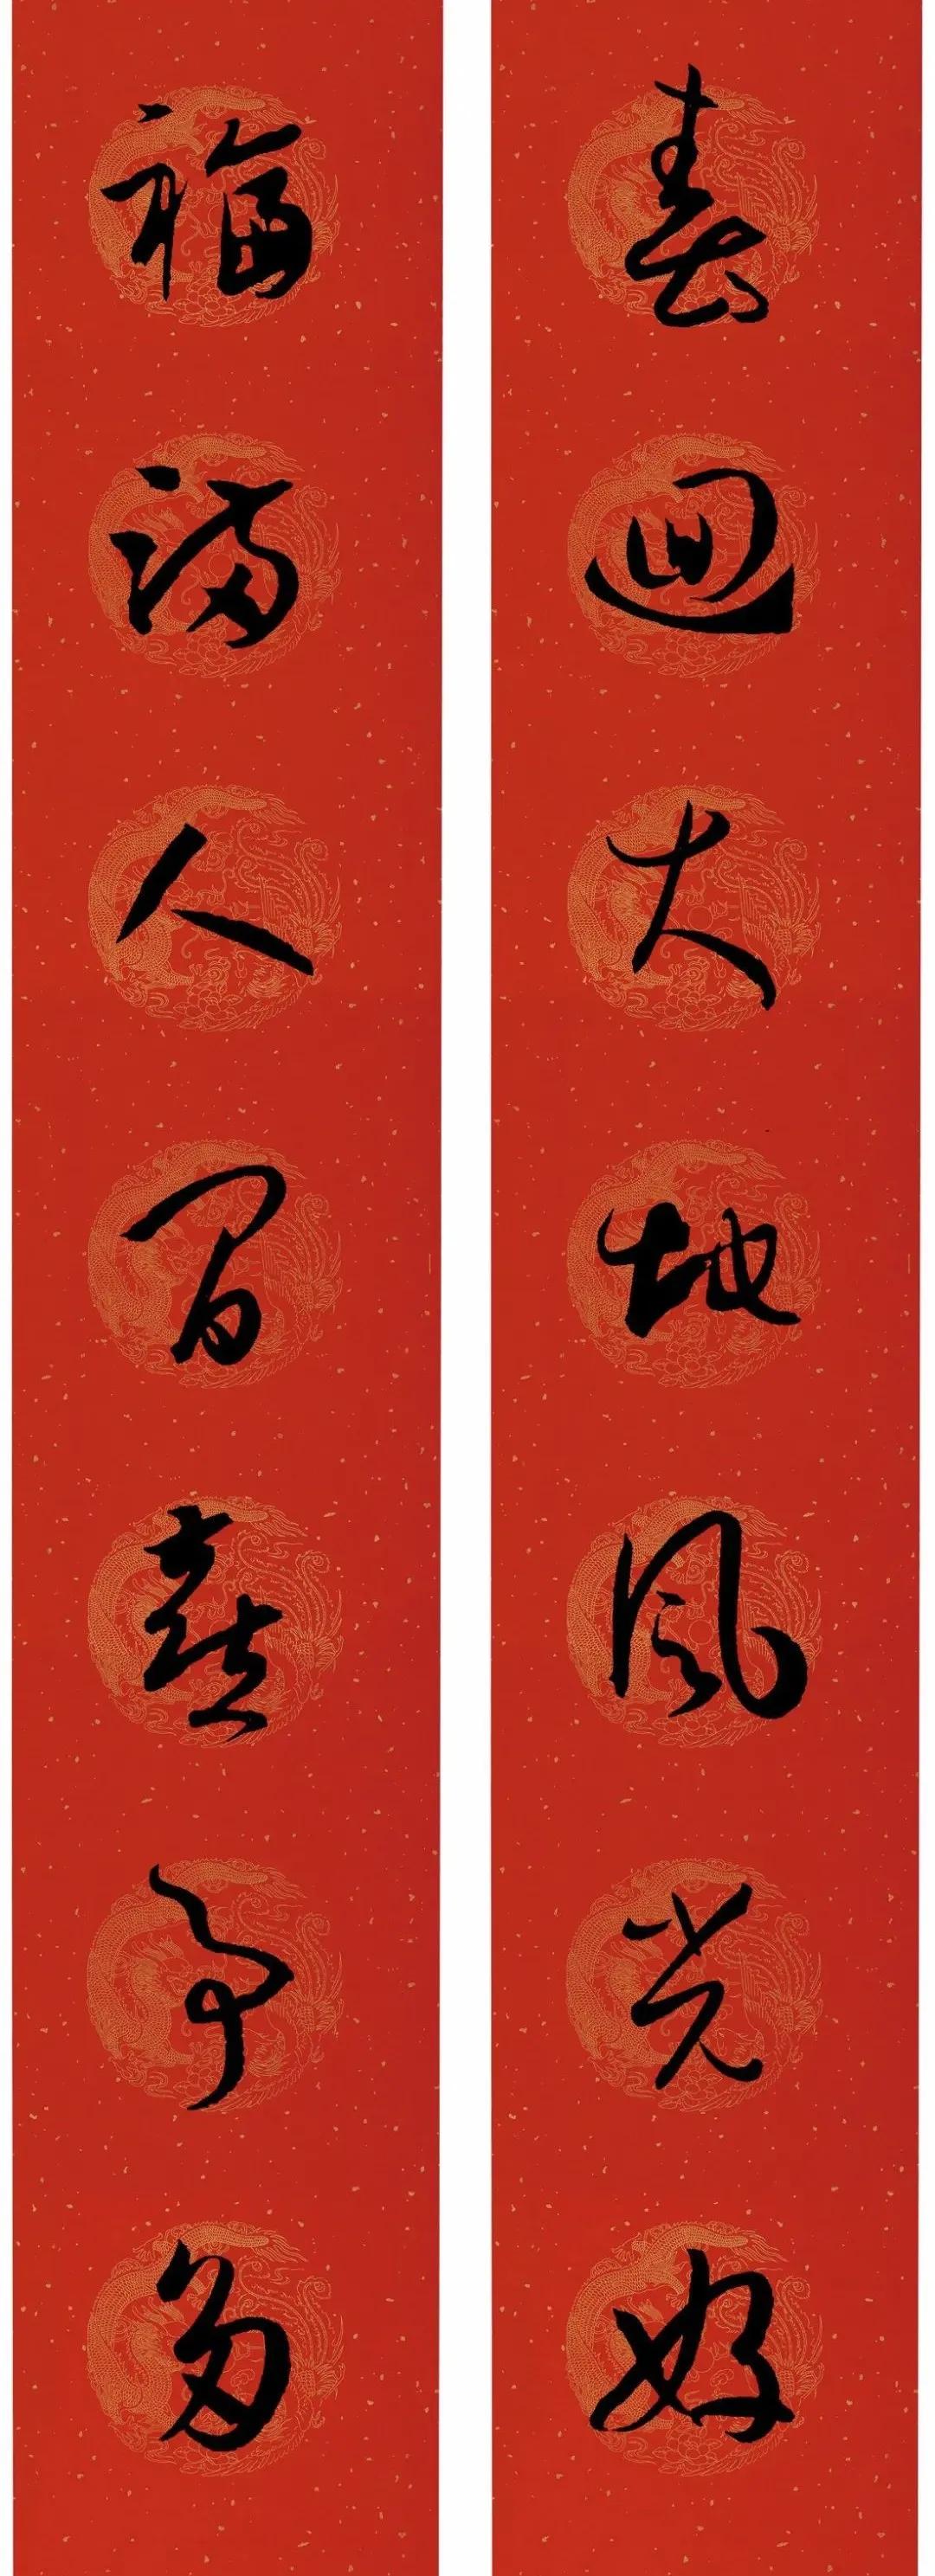 春回大地風光好
福滿人間喜事多